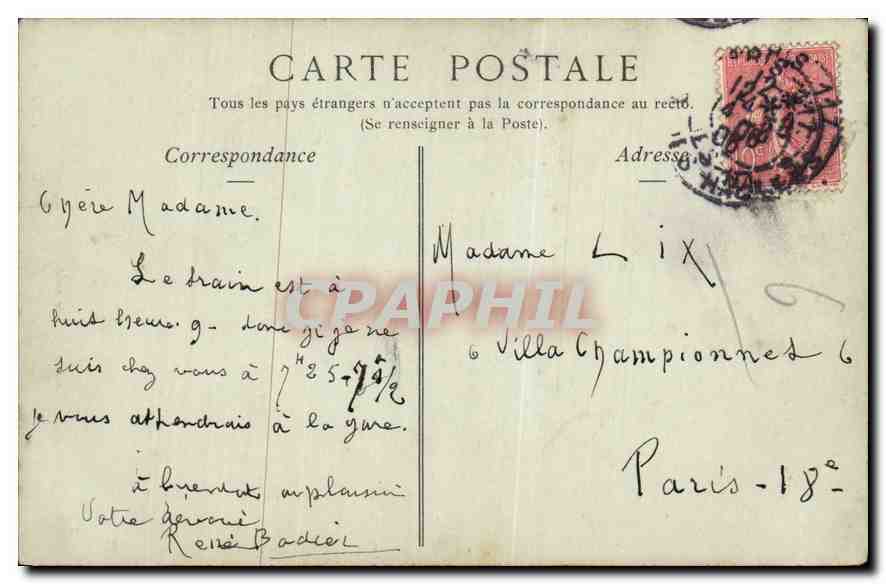 CARTE POSTALE
Tous les pays étrangers n'acceptent pas la correspondance au recto.
(Se renseigner à la Poste).
Correspondance
Adresse
Chère Madame.
Le train est à
huit heure. 9 - donc si je ne
suis chez vous à 7H25-7h1/2
je vous attendrais à la gare.
à bientot au plaisir
Votre dévoué
René Badier
Madame Lix
6 Villa Championnet 6
Paris - 18e
CPAPHIL